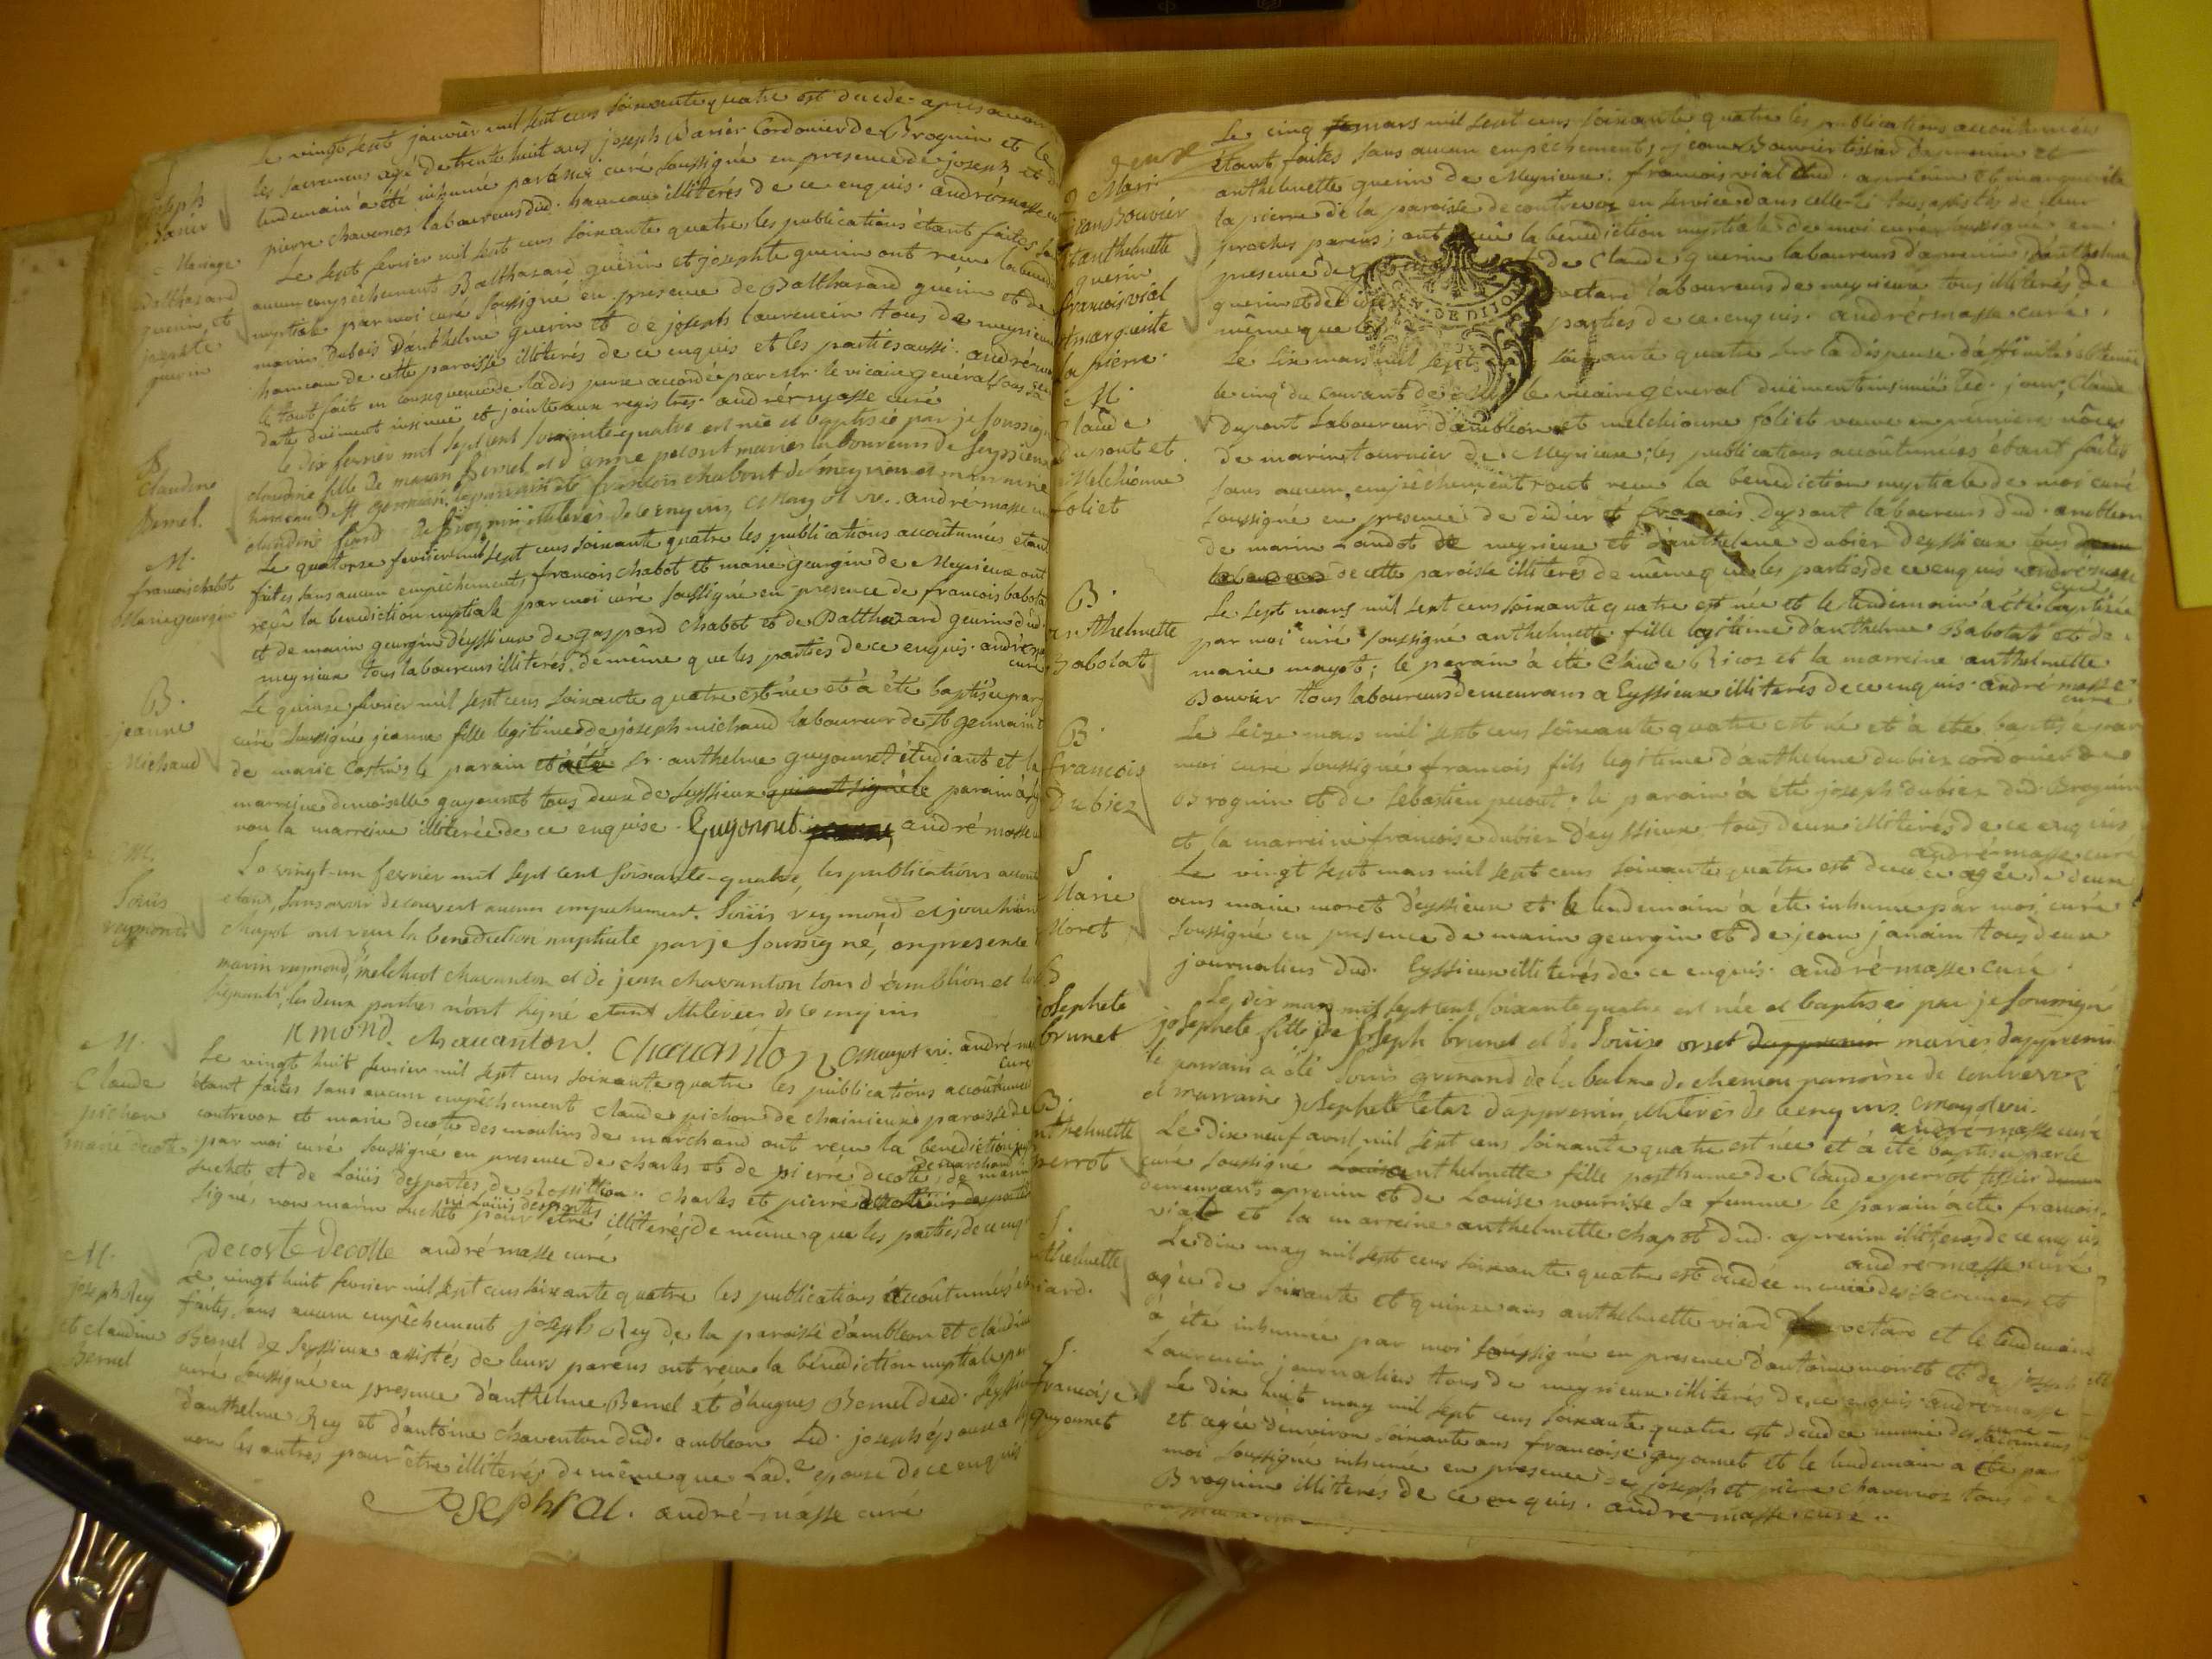 Le vingt sept janvier mil sept cens soixante quatre est decede apres avoir
les sacremens agé de trente huit ans joseph Cordonier de Brognin et le
lendemain a été inhumé par moi curé soussigné en presence de joseph et de
pierre chavernoz laboureurs dud. hameau illiterés de ce enquis. andré masse
Mariage
Balthazard
guerin et
josephte
guerin
Le sept fevrier mil sept cens soixante quatre, les publications étant faites
aucun empechement Balthazard guerin et josephte guerin ont reçu la
nuptiale par moi curé soussigné en presence de Balthazard guérin et de
marin Dubois d'anthelme guerin et de joseph laurencin tous de meyrieux
hameau de cette paroisse illiterés de ce enquis et les parties aussi.
le tout fait en consequence de la dispense accordée par le vicaire général
date duëment insinuée et jointe aux registres. andré masse curé
B
Claudine
Bernel.
le dix fevrier mil sept cent soixante quatre est née et baptisée par je soussigné
claudine fille de marin Bernel et d'anne pecout mariés laboureurs de
hameau de st germain, le parrain françois chabout de meyrieu et marraine
claudine de Brognin illiteres de ce enquis andré masse
M.
francois chabot
Marie georgin
Le quatorze fevrier mil sept cens soixante quatre les publications accoûtumées étant
faites sans aucun empêchement, francois chabot et marie georgin de Meyrieux ont
reçu la benediction nuptiale par moi curé soussigné en presence de francois babolat
et de marin georgin d'eyssieux de gaspard chabot et de Balthazard guerin dud.
meyrieux tous laboureurs illiterés, de même que les parties de ce enquis. andré masse
curé
B.
jeanne
Michaud
Le quinze fevrier mil sept cens soixante quatre est née et a été baptisée par
curé soussigné jeanne fille legitime de joseph michaud laboureur de st germain
de marie le parain sr. anthelme guyonnet étudiant et la
marreine demoiselle guyonnet tous deux de seyssieux parain a
non la marreine illiterée de ce enquise. Guyonnet andré masse
M.
Loüis
reymond
Le vingt-un fevrier mil sept cent soixante-quatre, les publications
etant, sans avoir decouvert aucun empechement. Loüis reymond et
chapot ont reçu la benediction nuptiale par je soussigné, en presence
marin reymond, melchiot chavanton et de jean chavanton tous d'amblëon et
signants, les deux parties n'ont signé etant illiterées de ce enquis
rmond. chauanton. chauanton andré masse
curé
M.
Claude
pichon
marie decote
Le vingt huit fevrier mil sept cens soixante quatre les publications accoûtumées
étant faites sans aucun empêchement Claude pichon de chainieux paroisse de
contrevoz et marie decote des moulins de marchand ont reçu la benediction
par moi curé soussigné en presence de charles et de pierre decote de marchand
suchet et de Loüis desportes de Rossillon. charles et pierre
signé, non marin suchet ni Loüis desportes pour être illiterés de même que les parties de ce enquis
decoste decoste andré masse curé
M.
joseph Rey
et claudine
Bernel
Le vingt huit fevrier mil sept cens soixante quatre les publications accoûtumées
faites, sans aucun empêchement joseph Rey de la paroisse d'ambleon et claudine
Bernel de seyssieux assistés de leurs parens ont reçu la bénediction nuptiale par
curé soussigné en presence d'anthelme Bernel et d'hugues Bernel dud.
d'anthelme Rey et d'antoine chavanton dud. ambleon led. joseph époux a signé
non les autres pour être illiterés de même que lad.e epouse de ce enquis
Joseph Rai. andré masse curé
Mari
jean Bouvier
et anthelmette
guerin
francois vial
et marguerite
la pierre.
Le cinq mars mil sept cens soixante quatre les publications accoûtumées
étant faites sans aucun empêchement; jean Bouvier tissier d'aprenin et
anthelmette guerin de Meyrieux: francois vial dud. aprenin et marguerite
la pierre de la paroisse de contrevoz en service dans celle-ci tous assistés de leur
proches parens; ont reçu la benediction nuptiale de moi curé soussigné en
presence de de Claude guerin laboureurs d'aprenin, d'anthelme
guerin et de Didier vetard laboureurs de meyrieux tous illiterés, de
même que les parties de ce enquis. andré masse curé.
DE DIJON
M.
Claude
Dupont et
Melchionne
joliet
Le six mars mil sept soixante quatre sur la dispense d'affinité obtenuë
le cinq du courant de le vicaire général duëment insinuée led. jour; Claude
Dupont laboureur d'ambleon et melchionne joliet veuve en premieres nôces
de marin tournier de Meyrieux; les publications accoûtumées étant faites
sans aucun empêchement ont reçu la benediction nuptiale de moi curé
soussigné en presence de didier et françois Dupont laboureurs dud. ambleon
de marin Landot de meyrieux et d'anthelme dubiez d'eyssieux tous
de cette paroisse illiterés de même que les parties de ce enquis andré masse
curé
B.
anthelmette
babolat
Le sept mars mil sept cens soixante quatre est née et le lendemain a été baptisée
par moi curé soussigné anthelmette fille legitime d'anthelme Babolat et de
marie mayot; le parain a été Claude Ricoz et la marreine anthelmette
Bouvier tous laboureurs demeurans a Eyssieux illiterés de ce enquis. andré masse
curé
B.
francois
Dubiez
Le seize mars mil sept cens soixante quatre est né et a été baptisé par
moi curé soussigné francois fils legitime d'anthelme dubiez cordonier de
Brognin et de sebastien pecout. le parain a été joseph dubiez dud. Brognin
et la marreine francoise dubiez d'eyssieux tous deux illiterés de ce enquis
andré masse curé
S
Marie
Moret
Le vingt sept mars mil sept cens soixante quatre est decedée agée de deux
ans marie moret d'eyssieux et le lendemain a été inhumé par moi curé
soussigné en presence de marin georgin et de jean janain tous deux
journaliers dud. Eyssieux illiterés de ce enquis. andré masse curé.
B
josephete
brunet
Le dix mars mil sept cent soixante quatre est née et baptisée par je soussigné
josephete fille de joseph brunet et de Loüise orset dapprenin mariés dapprenin
le parrain a été Louis grenand de la balme de chemou paroisse de contrevoz
et marraine josephete letaz dapprenin, illiterés de ce enquis.
andré masse curé
B.
anthelmette
perrot
Le dix neuf avril mil sept cens soixante quatre est née et a été baptisée par le
curé soussigné anthelmette fille posthume de Claude perrot tissier
demeurant aprenin et de Louise nourrisse sa femme, le parain a été francois
viald et la marreine anthelmette chapot dud. aprenin illiterés de ce enquis
andré masse curé
S.
anthelmette
viard.
Le dix may mil sept cens soixante quatre est décedée munie des sacremens et
agée de soixante et quinze ans anthelmette viard vetard et le lendemain
a été inhumée par moi soussigné en presence d'antoine moiret et de joseph
Laurencin journaliers tous de meyrieux illiterés de ce enquis. andré masse
curé
S.
francoise
guyonnet
Le dix huit may mil sept cens soixante quatre est decedée munie des sacremens
et agée d'environ soixante ans francoise guyonnet et le lendemain a été par
moi soussigné inhumé en presence de joseph et pierre chavernoz tous de
Brognin illiterés de ce enquis. andré masse curé.